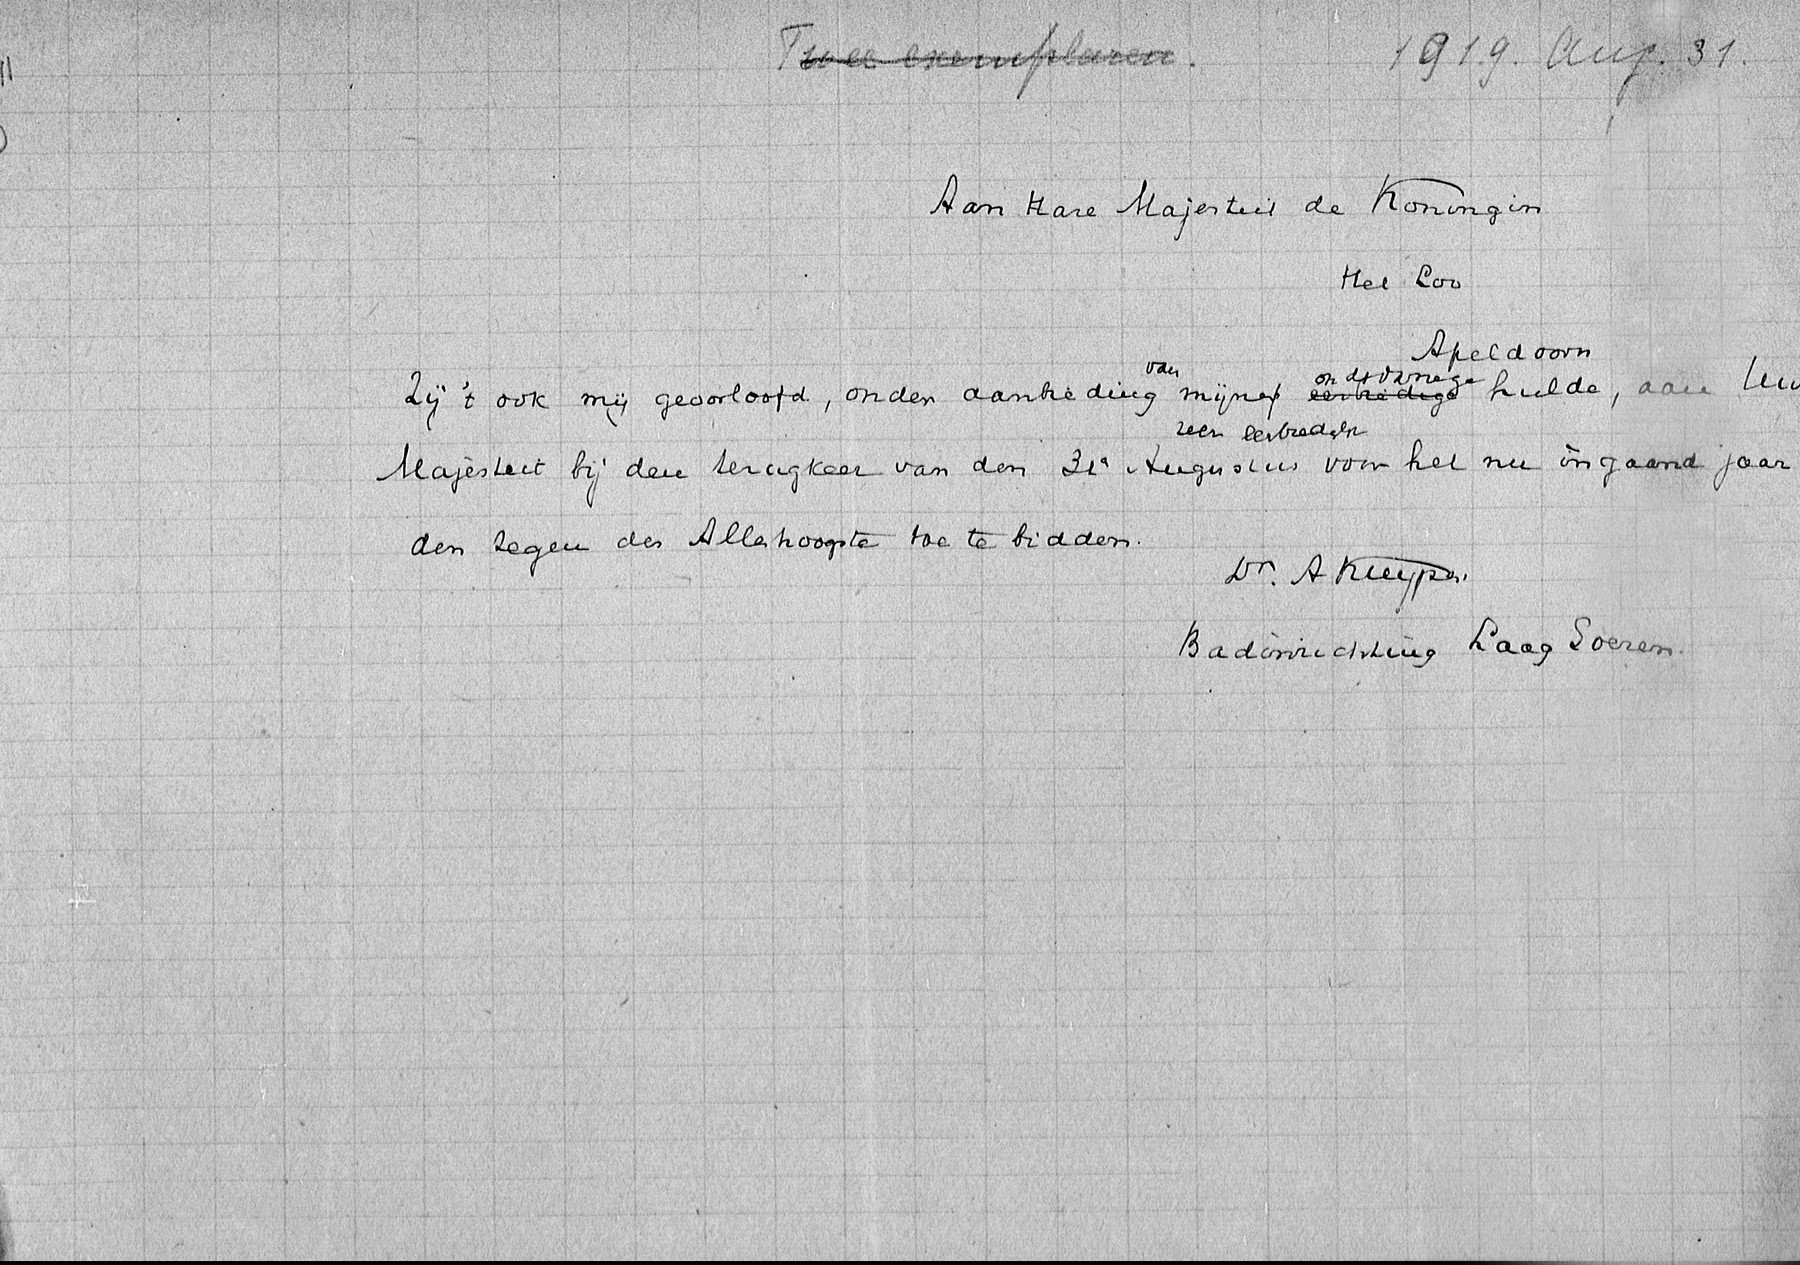 Twee exemplaren. 1919. Aug. 31.
Aan Hare Majesteit de Koningin
Het Loo
Apeldoorn
van
Zij 't ook mij geoorloofd, onder aanbieding mijner eerbiedige hulde, aan Uw
zeer eerbiedige
Majesteit bij den terugkeer van den 31e Augustus voor het nu ingaand jaar
den zegen des Allerhoogste toe te bidden.
Dr. A Kuyper.
Badinrichting Laag Soeren.